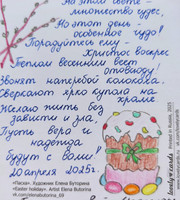 На этом свете -
множество чудес,
Но этот день -
особенное чудо!
Порадуйтесь ему -
Христос воскрес
Теплом весенним всем
отовсюду!
Звонят напереб колокола.
Сверкают ярко купола на
храме
Желаю жить без
зависти и зла,
Пусть вера и
надежда
будут с вами!
20 апреля 2025г.
«Пасха». Художник Елена Буторина
«Easter holiday». Artist Elena Butorina
vk.com/elenabutorina_69